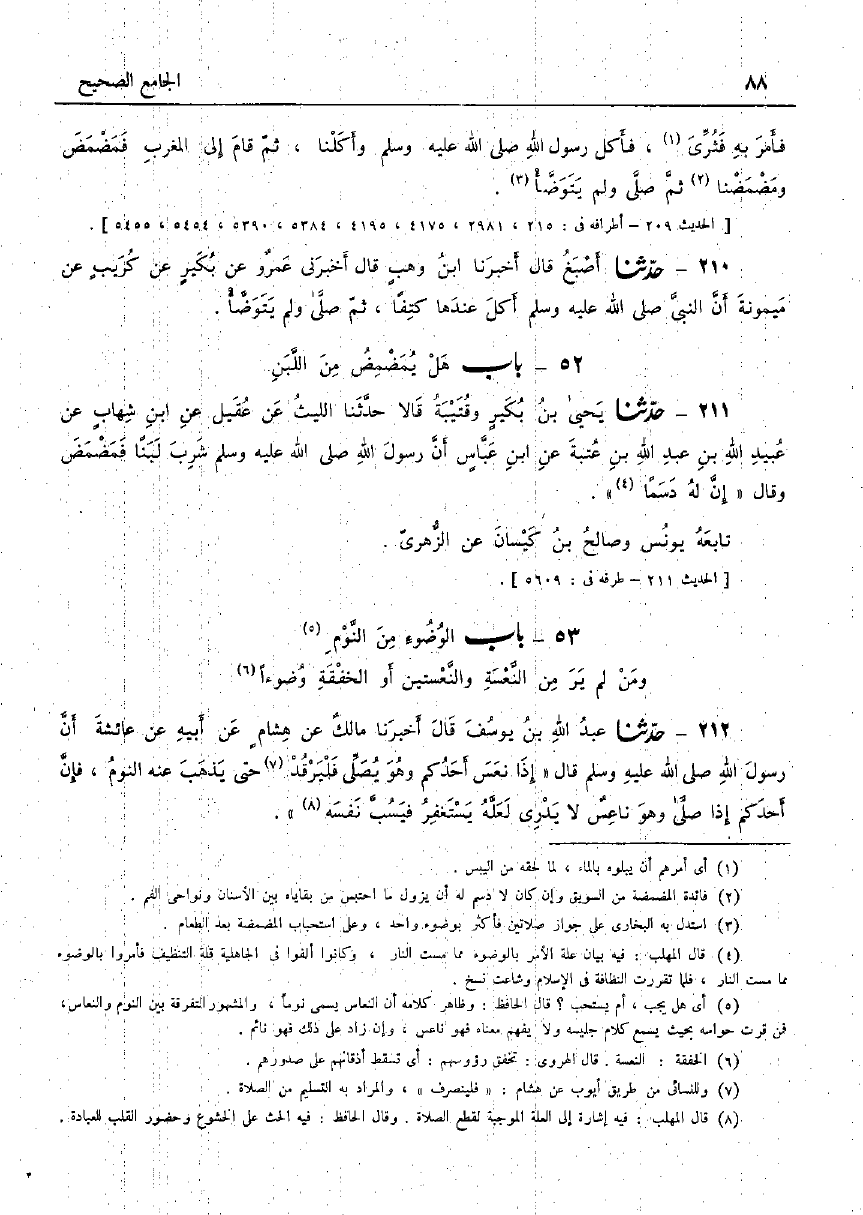 ٨٨ الجامع الصحيح
فأَمرَ بهِ فَثُرِّىَ (١) ، فأَكل رسول اللهِ صلى الله عليه وسلم وأَكَلْنا ، ثمّ قامَ إلى المغربِ فَمَضْمَضَ
ومَضْمَضْنا (٢) ثمَّ صلَّى ولم يَتَوَضَّأْ (٣) .
[ الحديث ٢٠٩ – أطرافه فى : ٢١٥ ، ٢٩٨١ ، ٤١٧٥ ، ٤١٩٥ ، ٥٣٨٤ ، ٥٣٩٠ ، ٥٤٥٤ ، ٥٤٥٥ ] .
٢١٠ – حدّثنا أَصْبَغُ قال أَخبرَنا ابنُ وهبٍ قال أخبرَنى عَمرٌو عن بُكَيرٍ عن كُرَيبٍ عن
مَيمونةَ أَنَّ النبىَّ صلى الله عليه وسلم أَكلَ عندَها كتِفًا ، ثمّ صلَّىٰ ولم يَتَوَضَّأْ .
٥٢ – باب هَلْ يُمَضْمِضُ مِنَ اللَّبَنِ
٢١١ – حدّثنا يَحيىٰ بنُ بُكَيرٍ وقُتَيْبَةُ قَالا حدَّثَنا الليثُ عَن عُقَيل عنِ ابنِ شِهابٍ عن
عُبيدِ اللهِ بنِ عبدِ اللهِ بنِ عُتبةَ عنِ ابنِ عَبَّاس أَنَّ رسولَ اللهِ صلى الله عليه وسلم شَرِبَ لَبَنًا فَمَضْمَضَ
وقال « إِنَّ لهُ دَسَمًا (٤) » .
تابعَهُ يونُس وصالحُ بنُ كَيْسانَ عن الزُّهرىّ .
[ الحديث ٢١١ – طرفه فى : ٥٦٠٩ ] .
٥٣ – باب الوُضُوءِ مِنَ النَّوْمِ (٥)
ومَنْ لم يَرَ مِن النَّعْسَةِ والنَّعْستين أَو الخفْقَةِ وُضوءاً (٦)
٢١٢ – حدّثنا عبدُ اللهِ بنُ يوسُفَ قَالَ أَخبرَنا مالكٌ عن هِشامٍ عَن أَبيهِ عن عائشةَ أَنَّ
رسولَ اللهِ صلى الله عليهِ وسلم قال « إِذَا نعَسَ أَحَدُكم وهُوَ يُصَلِّى فَلْيَرْقُدْ (٧) حتى يَذهَبَ عنه النومُ ، فإِنَّ
أَحدَكم إذا صلَّىٰ وهوَ ناعِسٌ لا يَدْرِى لَعَلَّهُ يَسْتَغفِرُ فيَسُبَّ نَفسَه (٨) » .
(١) أى أمرهم أن يبلوه بالماء ، لما لحقه من اليبس .
(٢) فائدة المضمضة من السويق وإن كان لا دسم له أن يزول ما احتبس من بقاياه بين الأسنان ونواحى الفم .
(٣) استدل به البخارى على جواز صلاتين فأكثر بوضوء واحد ، وعلى استحباب المضمضة بعد الطعام .
(٤) قال المهلب : فيه بيان علة الأمر بالوضوء مما مست النار ، وكانوا ألفوا فى الجاهلية قلة التنظيف فأمروا بالوضوء
مما مست النار ، فلما تقررت النظافة فى الإسلام وشاعت نسخ .
(٥) أى هل يجب ، أم يستحب ؟ قال الحافظ : وظاهر كلامه أن النعاس يسمى نوماً ، والمشهور التفرقة بين النوم والنعاس،
فمن قرت حواسه بحيث يسمع كلام جليسه ولا يفهم معناه فهو ناعس ، وإن زاد على ذلك فهو نائم .
(٦) الخفقة : النعسة . قال الهروى : تخفق رؤوسهم : أى تسقط أذقانهم على صدورهم .
(٧) وللنسائى من طريق أيوب عن هشام : « فلينصرف » ، والمراد به التسليم من الصلاة .
(٨) قال المهلب : فيه إشارة إلى العلة الموجبة لقطع الصلاة . وقال الحافظ : فيه الحث على الخشوع وحضور القلب للعبادة .